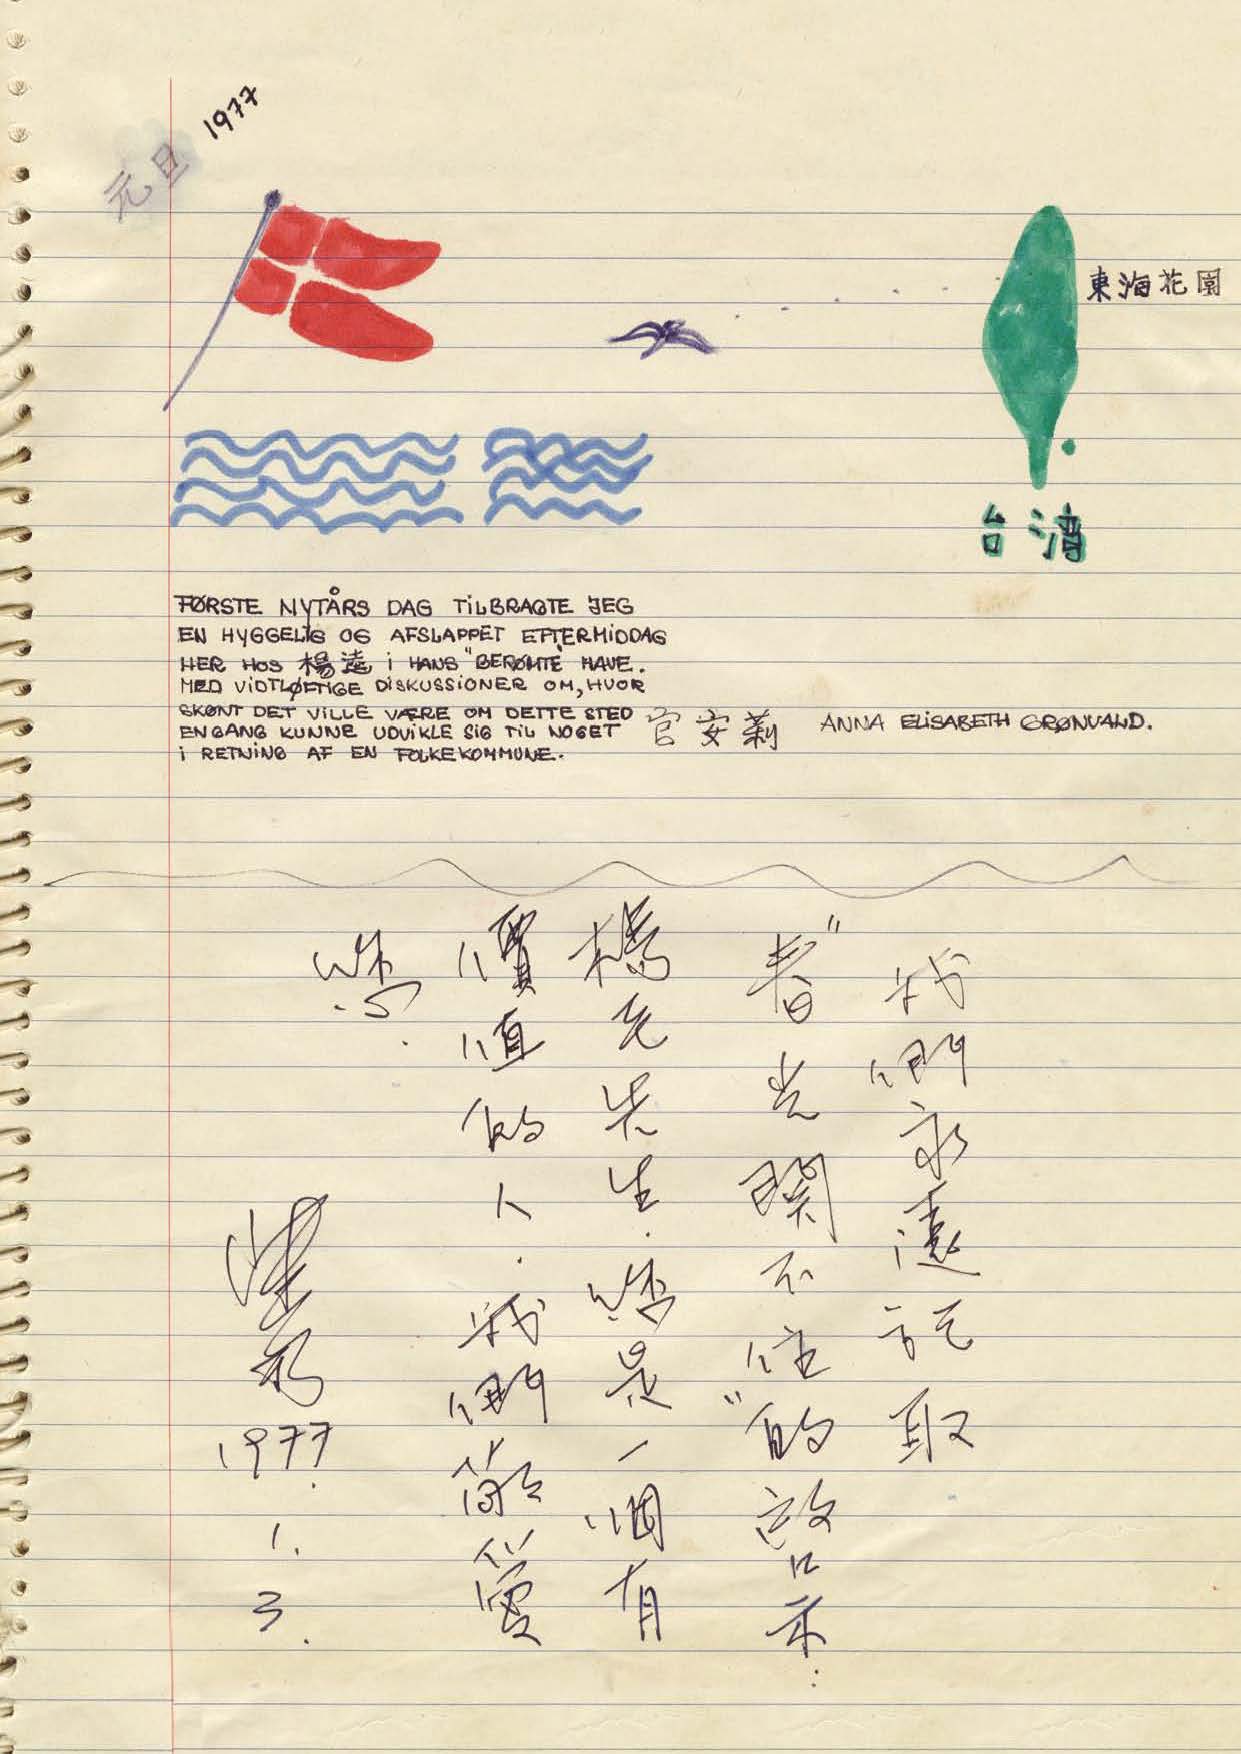 元旦 1977
東海花園
台灣
FØRSTE NYTÅRS DAG TILBRAGTE JEG
EN HYGGELIG OG AFSLAPPET EFTERMIDDAG
HER HOS 楊逵 I HANS "BERØMTE" HAVE.
MED VIDTLØFTIGE DISKUSSIONER OM, HVOR
SKØNT DET VILLE VÆRE OM DETTE STED
ENGANG KUNNE UDVIKLE SIG TIL NOGET
I RETNING AF EN FOLKEKOMMUNE.
官安莉 ANNA ELISABETH GRØNVALD.
我們永遠記取
"春光関不住"的啟示:
楊逵先生.您是一個有
價值的人.我們敬愛
您.
1977.
1.
3.